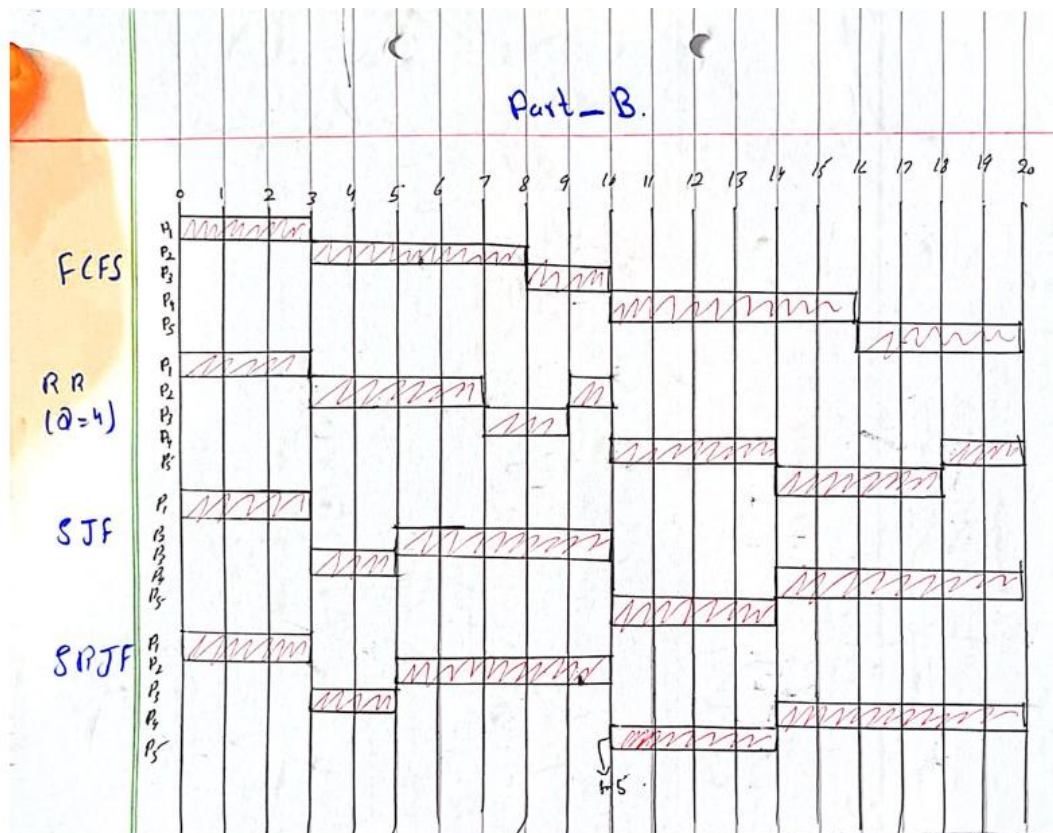 Part_B.
0 1 2 3 4 5 6 7 8 9 10 11 12 13 14 15 16 17 18 19 20
FCFS
P1
P2
P3
P4
P5
RR
(Q=4)
P1
P2
P3
P4
P5
SJF
P1
P3
P4
P5
SRJF
P1
P2
P3
P4
P5